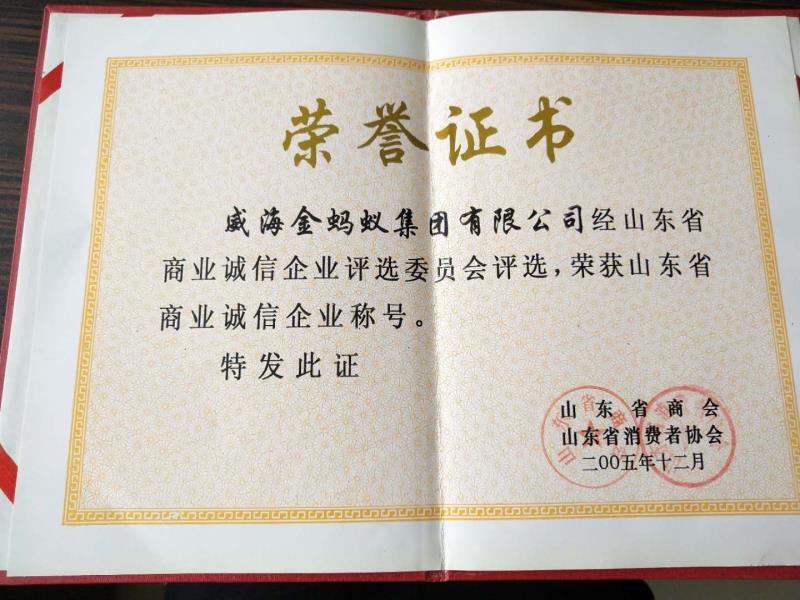 荣誉证书
威海金蚂蚁集团有限公司经山东省
商业诚信企业评选委员会评选,荣获山东省
商业诚信企业称号。
特发此证
山东省商会
山东省消费者协会
二00五年十二月